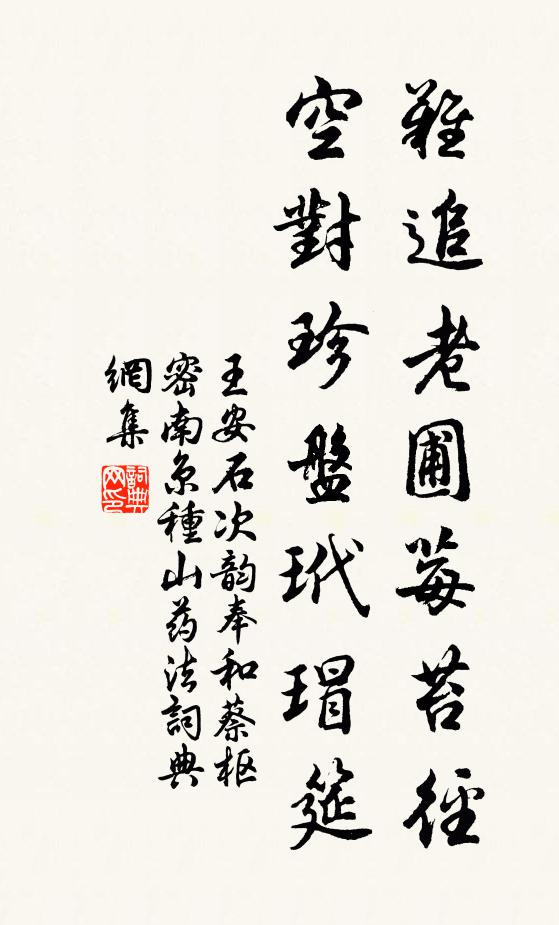 難追老圃莓苔徑
空對珍盤玳瑁筵
王安石次韵奉和蔡枢
密南京種山药法詞典
網集
詞典
网印